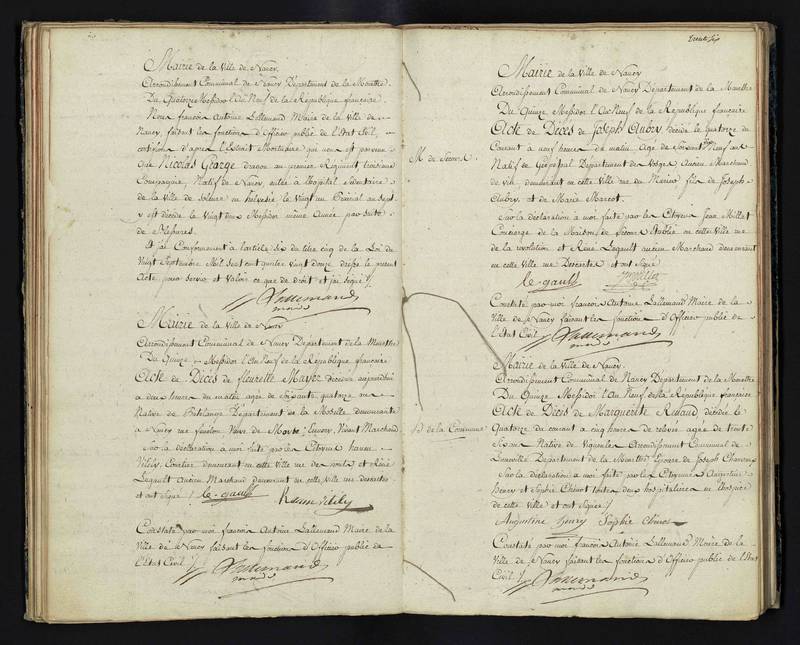 Mairie de la Ville de Nancy
Arrondissement Communal de Nancy Département de la Meurthe
Du Quatorze Messidor l'an Neuf de la République française
Nous françois Antoine Lallemand Maire de la Ville de
Nancy, faisant les fonctions d'Officier public de l'Etat Civil,
certifions d'après l'Extrait Mortuaire qui nous est parvenu
que Nicolas George dragon au premier Régiment, troisième
Compagnie, Natif de Nancy, entré à l'hôpital Sédentaire
de la Ville de Soleure en helvétie le Vingt un Prairial an sept
y est décédé le Vingt deux Messidor même Année par suite
de
Et j'ai Conformément à l'article six du titre cinq de la Loi du
Vingt Septembre Mil sept cent quatre vingt douze, dressé le présent
Acte pour servir et Valoir ce que de droit et j'ai signé
Lallemand
maire
Mairie de la Ville de Nancy
Arrondissement Communal de Nancy Département de la Meurthe
Du Quinze Messidor l'An Neuf de la République française
Acte de Décès de fleurette Mayer décédée aujourd'hui
à deux heures du matin agée de soixante quatorze ans
Native de Département de la Moselle demeurante
à Nancy rue Veuve de Vivant Marchand
Sur la déclaration à moi faite par les Citoyens
Courtier demeurant en cette Ville rue de et Réné
Legault Ancien Marchand demeurant en cette Ville rue descartes
et ont signé
le-gault
Constaté par moi françois Antoine Lallemand Maire de la
Ville de Nancy faisant les fonctions d'Officier public de
l'Etat Civil
Lallemand
maire
Trente Six
Mairie de la Ville de Nancy
Arrondissement Communal de Nancy Département de la Meurthe
Du Quinze Messidor l'An Neuf de la République française
Acte de Décès de Joseph Aubry décédé le quatorze du
Courant à neuf heures du matin Agé de Soixante Neuf ans
Natif de Département des Vosges Ancien Marchand
de vin, demeurant en cette Ville rue du fils de Joseph
Aubry, et de Marie Marcot.
Sur la déclaration à moi faite par les Citoyens Jean Millet
Concierge de la Maison de Secours établie en cette Ville rue
de la révolution et Réné Legault ancien Marchand demeurant
en cette Ville rue Descartes et ont signé
M. de Secours.
le-gault
Constaté par moi françois Antoine Lallemand Maire de la
Ville de Nancy faisant les fonctions d'Officier public de
l'Etat Civil
Lallemand
maire
Mairie de la Ville de Nancy.
Arrondissement Communal de Nancy Département de la Meurthe
Du Quinze Messidor l'An Neuf de la République française
Acte de Décès de Marguerite décédée le
Quatorze du courant à cinq heures de relevée agée de trente
Six ans Native de Vigneules Arrondissement Communal de
Lunéville Département de la Meurthe Epouse de Joseph
de la Commune
Sur la déclaration à moi faite par les Citoyennes Augustine
henry et Sophie Chénot toutes deux hospitalières en l'hospice
de cette Ville et ont signé
Augustine henry Sophie Chénot
Constaté par moi françois Antoine Lallemand Maire de la
Ville de Nancy faisant les fonctions d'Officier public de l'Etat
Civil
Lallemand
maire